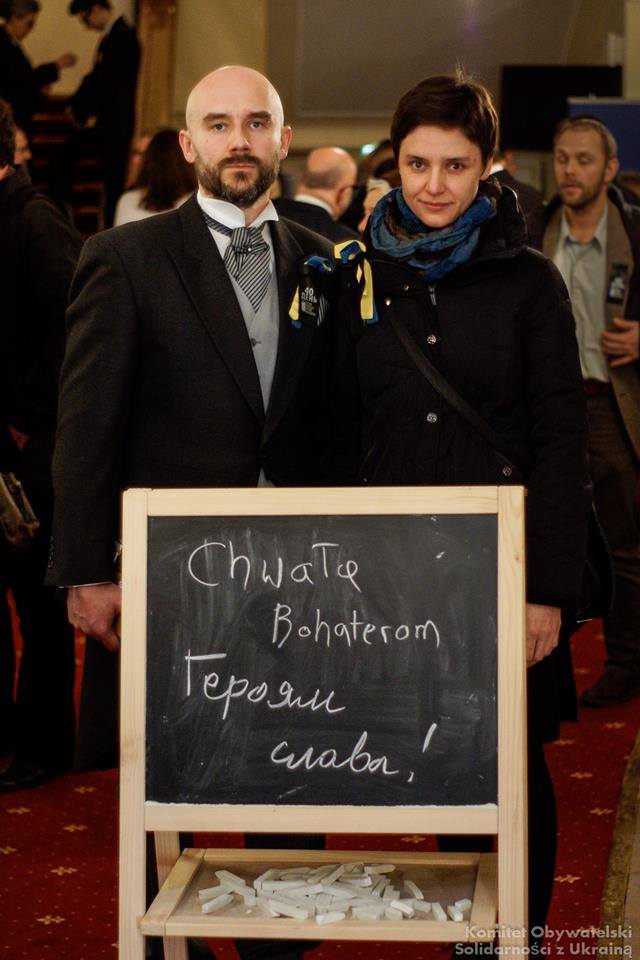 40
ДЕНЬ
Chwałą
Bohaterom
Героям
слава!
Komitet Obywatelski
Solidarności z Ukrainą